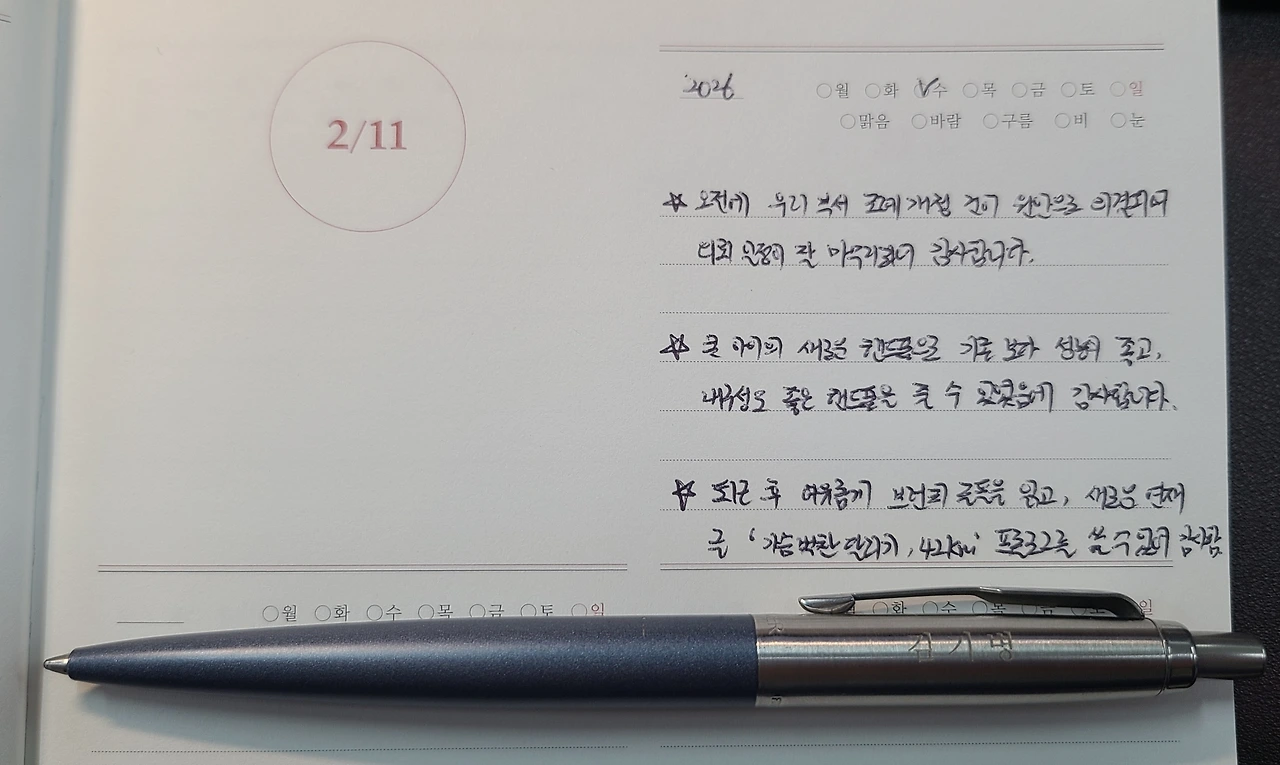 2/11
2026 ○월 ○화 ○수 ○목 ○금 ○토 ○일
○맑음 ○바람 ○구름 ○비 ○눈
☆ 오전에 우리 부서 조례개정 건이 원안으로 의결되어
의회 일정이 잘 마무리되어 감사합니다.
☆ 큰 아이의 새로운 핸드폰으로 기존 보다 성능이 좋고,
내구성도 좋은 핸드폰을 줄 수 있었음에 감사합니다.
☆ 퇴근 후 여유롭게 브런치 글들을 읽고, 새로운 연재
글 '가슴 벅찬 달리기, 42km' 프롤로그를 쓸 수 있어 감사함
○월 ○화 ○수 ○목 ○금 ○토 ○일
○화 ○수 ○목 ○금 일
김기명